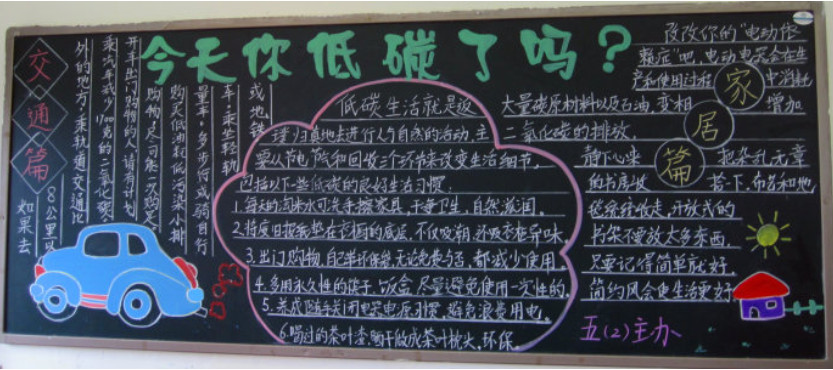 今天你低碳了吗？
交通篇
开车出门购物的人，请有计划
购物，尽可能一次购足。
购买低油耗低污染小排
量车，多步行或骑自行
车，乘坐轻轨
或地铁
如果去
8公里以
外的地方，乘轨道交通比
乘汽车减少1700克的二氧化碳。
低碳生活就是返
璞归真地去进行人与自然的活动，主
要从节电节气和回收三个环节来改变生活细节，
包括以下一些低碳的良好生活习惯：
1.每天的淘米水可洗手擦家具，干净卫生，自然滋润。
2.将废旧报纸垫在衣橱的底层，不仅吸潮，还吸衣柜异味。
3.出门购物，自己带环保袋，无论免费与否，都减少使用
4.多用永久性的筷子、饭盒，尽量避免使用一次性的。
5.养成随手关闭电器电源习惯，避免浪费用电。
6.喝过的茶叶渣，晒干做成茶叶枕头，环保。
家居篇
改改你的“电动依
赖症”吧，电动电器会在生
产和使用过程中消耗
大量碳原材料以及石油，变相增加
二氧化碳的排放。
静下心来把杂乱无章
的书房收拾一下，布条和地
毯统统收走，开放式的
书架不要放太多东西，
只要记得简单就好，
简约风会使生活更好
五(2)主办